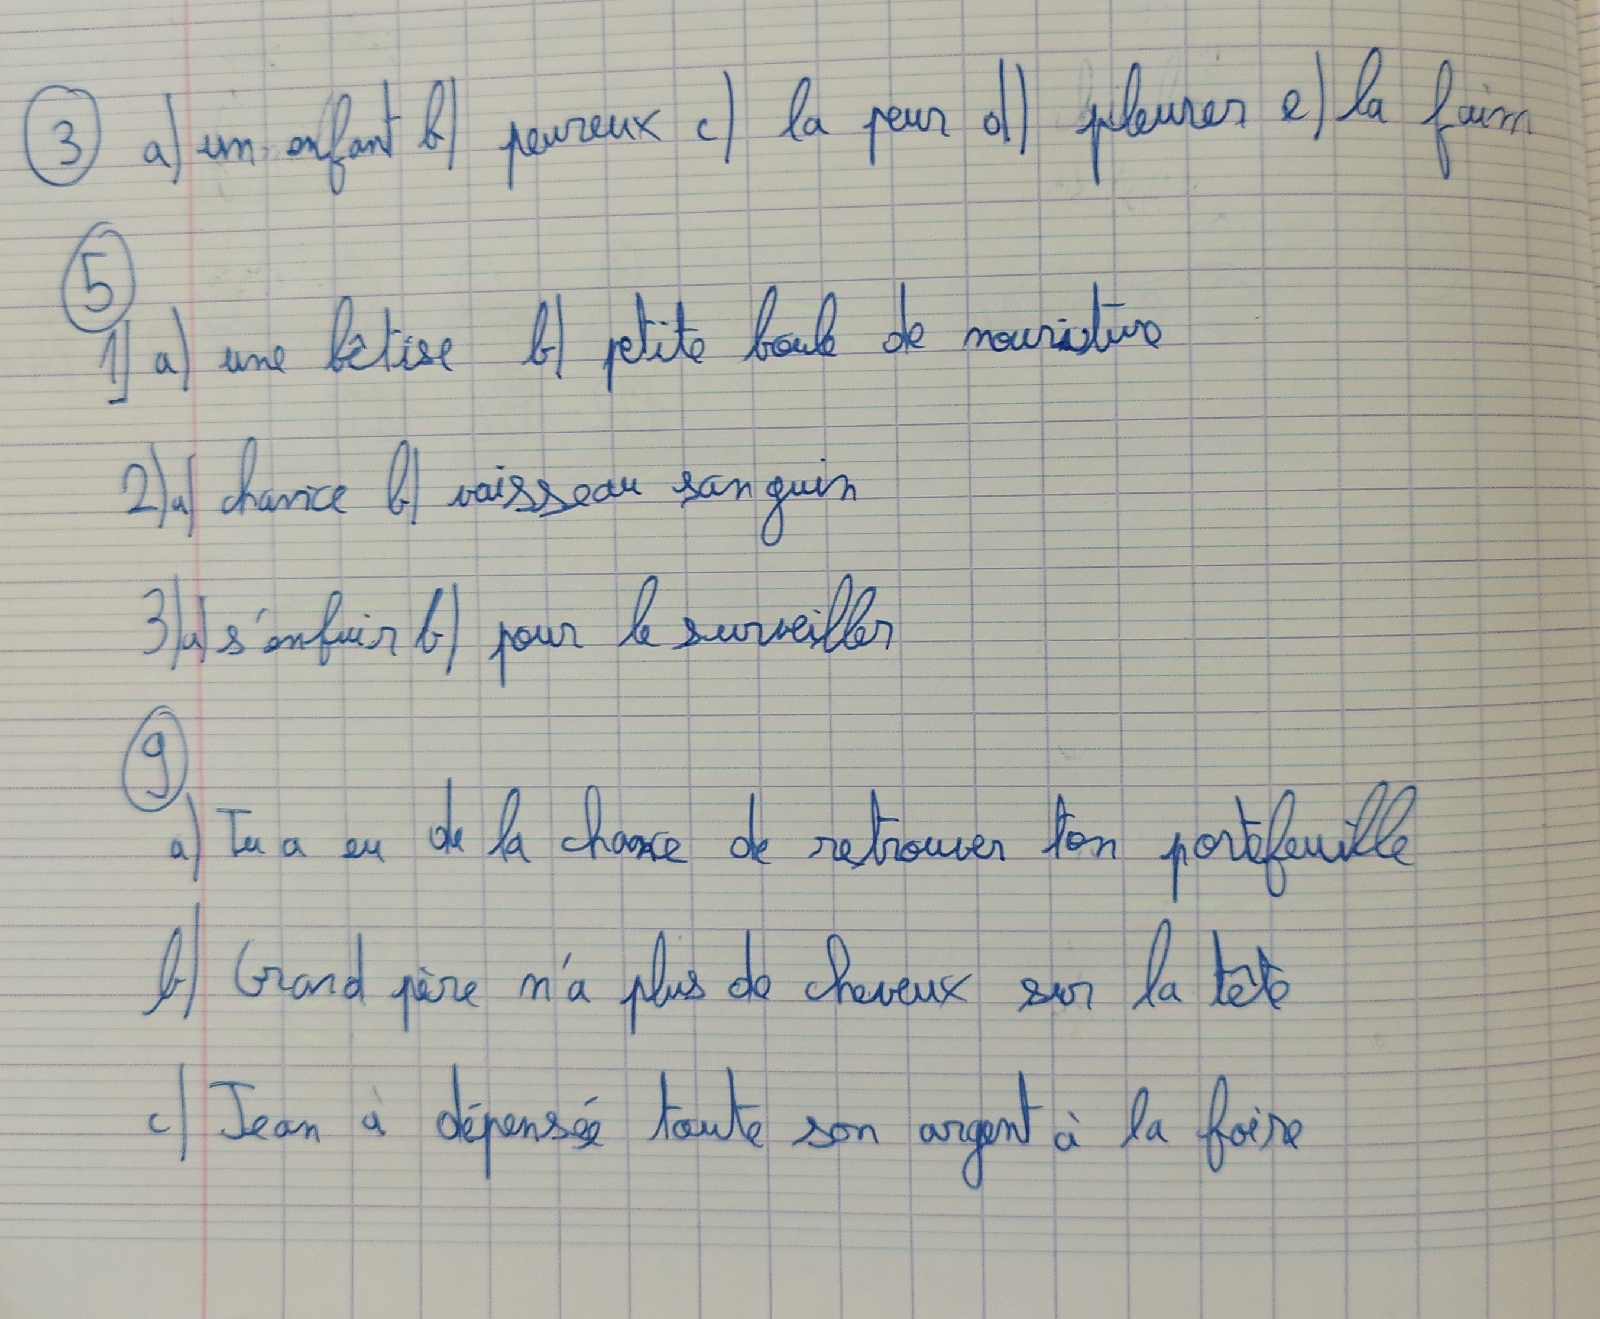 3 a) un enfant b) peureux c) la peur d) pleurer e) la faim
5
1) a) une bêtise b) petite boule de nouriture
2) a) chance b) vaisseau sanguin
3) a) s'enfuir b) pour le surveiller
9
a) Tu a eu de la chance de retrouver ton portefeuille
b) Grand père n'a plus de cheveux sur la tête
c) Jean à dépensée toute son argent à la foire